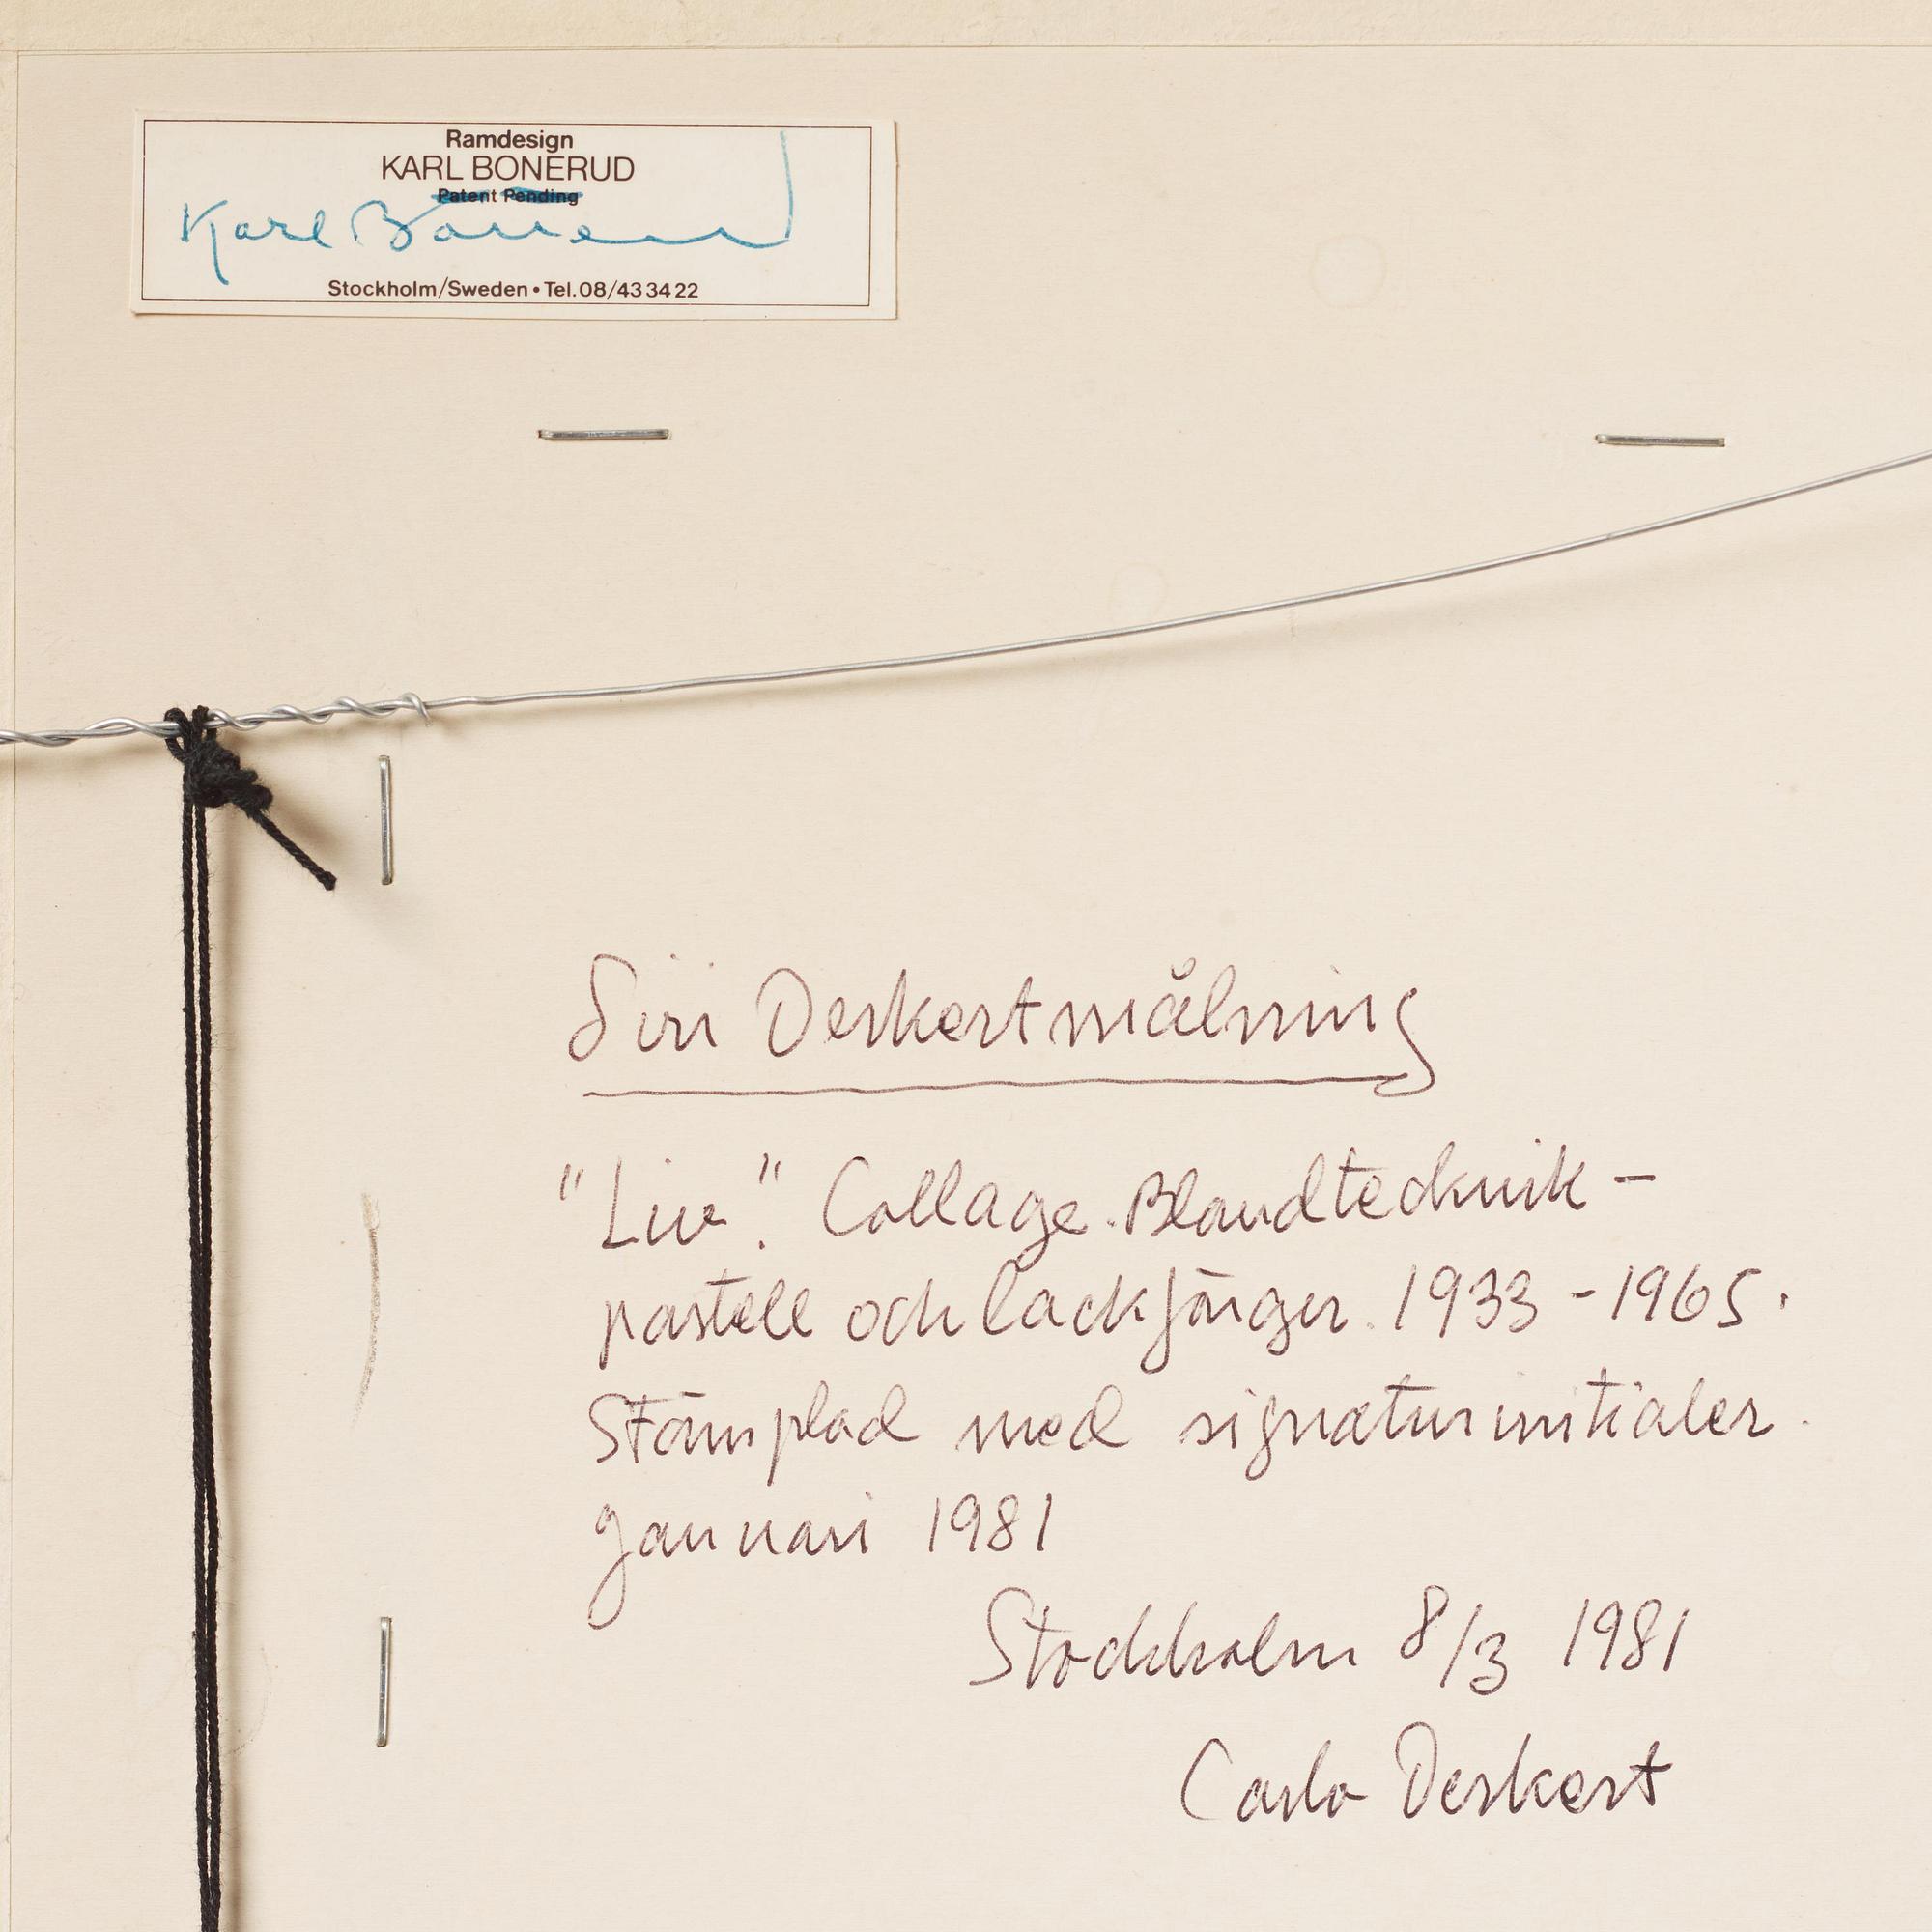 Ramdesign
KARL BONERUD
Patent Pending
Karl Bonerud
Stockholm/Sweden • Tel.08/433422
Siri Derkertmålning
"Liv". Collage. Blandtecknik –
pastell och lackfärger. 1933 - 1965.
Stämplad med signaturinitialer.
januari 1981
Stockholm 8/3 1981
Carlo Derkert